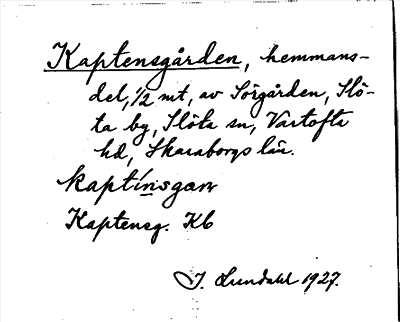 Kaptensgården, hemmans-
del, 1/2 mt, av Sörgården, Slö-
ta by, Slöta sn, Vartofta
hd, Skaraborgs län.
kaptínsgaṛ
Kaptensg. Kb
J. Lundahl 1927.